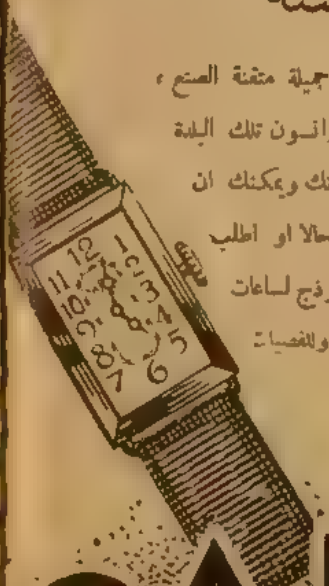 جميلة متقنة الصنع ،
تلك البلدة
ويمكنك ان
حالا او اطلب
لساعات
وللفصيات
12 1 2 3 4 5 6 7 8 9 10 11